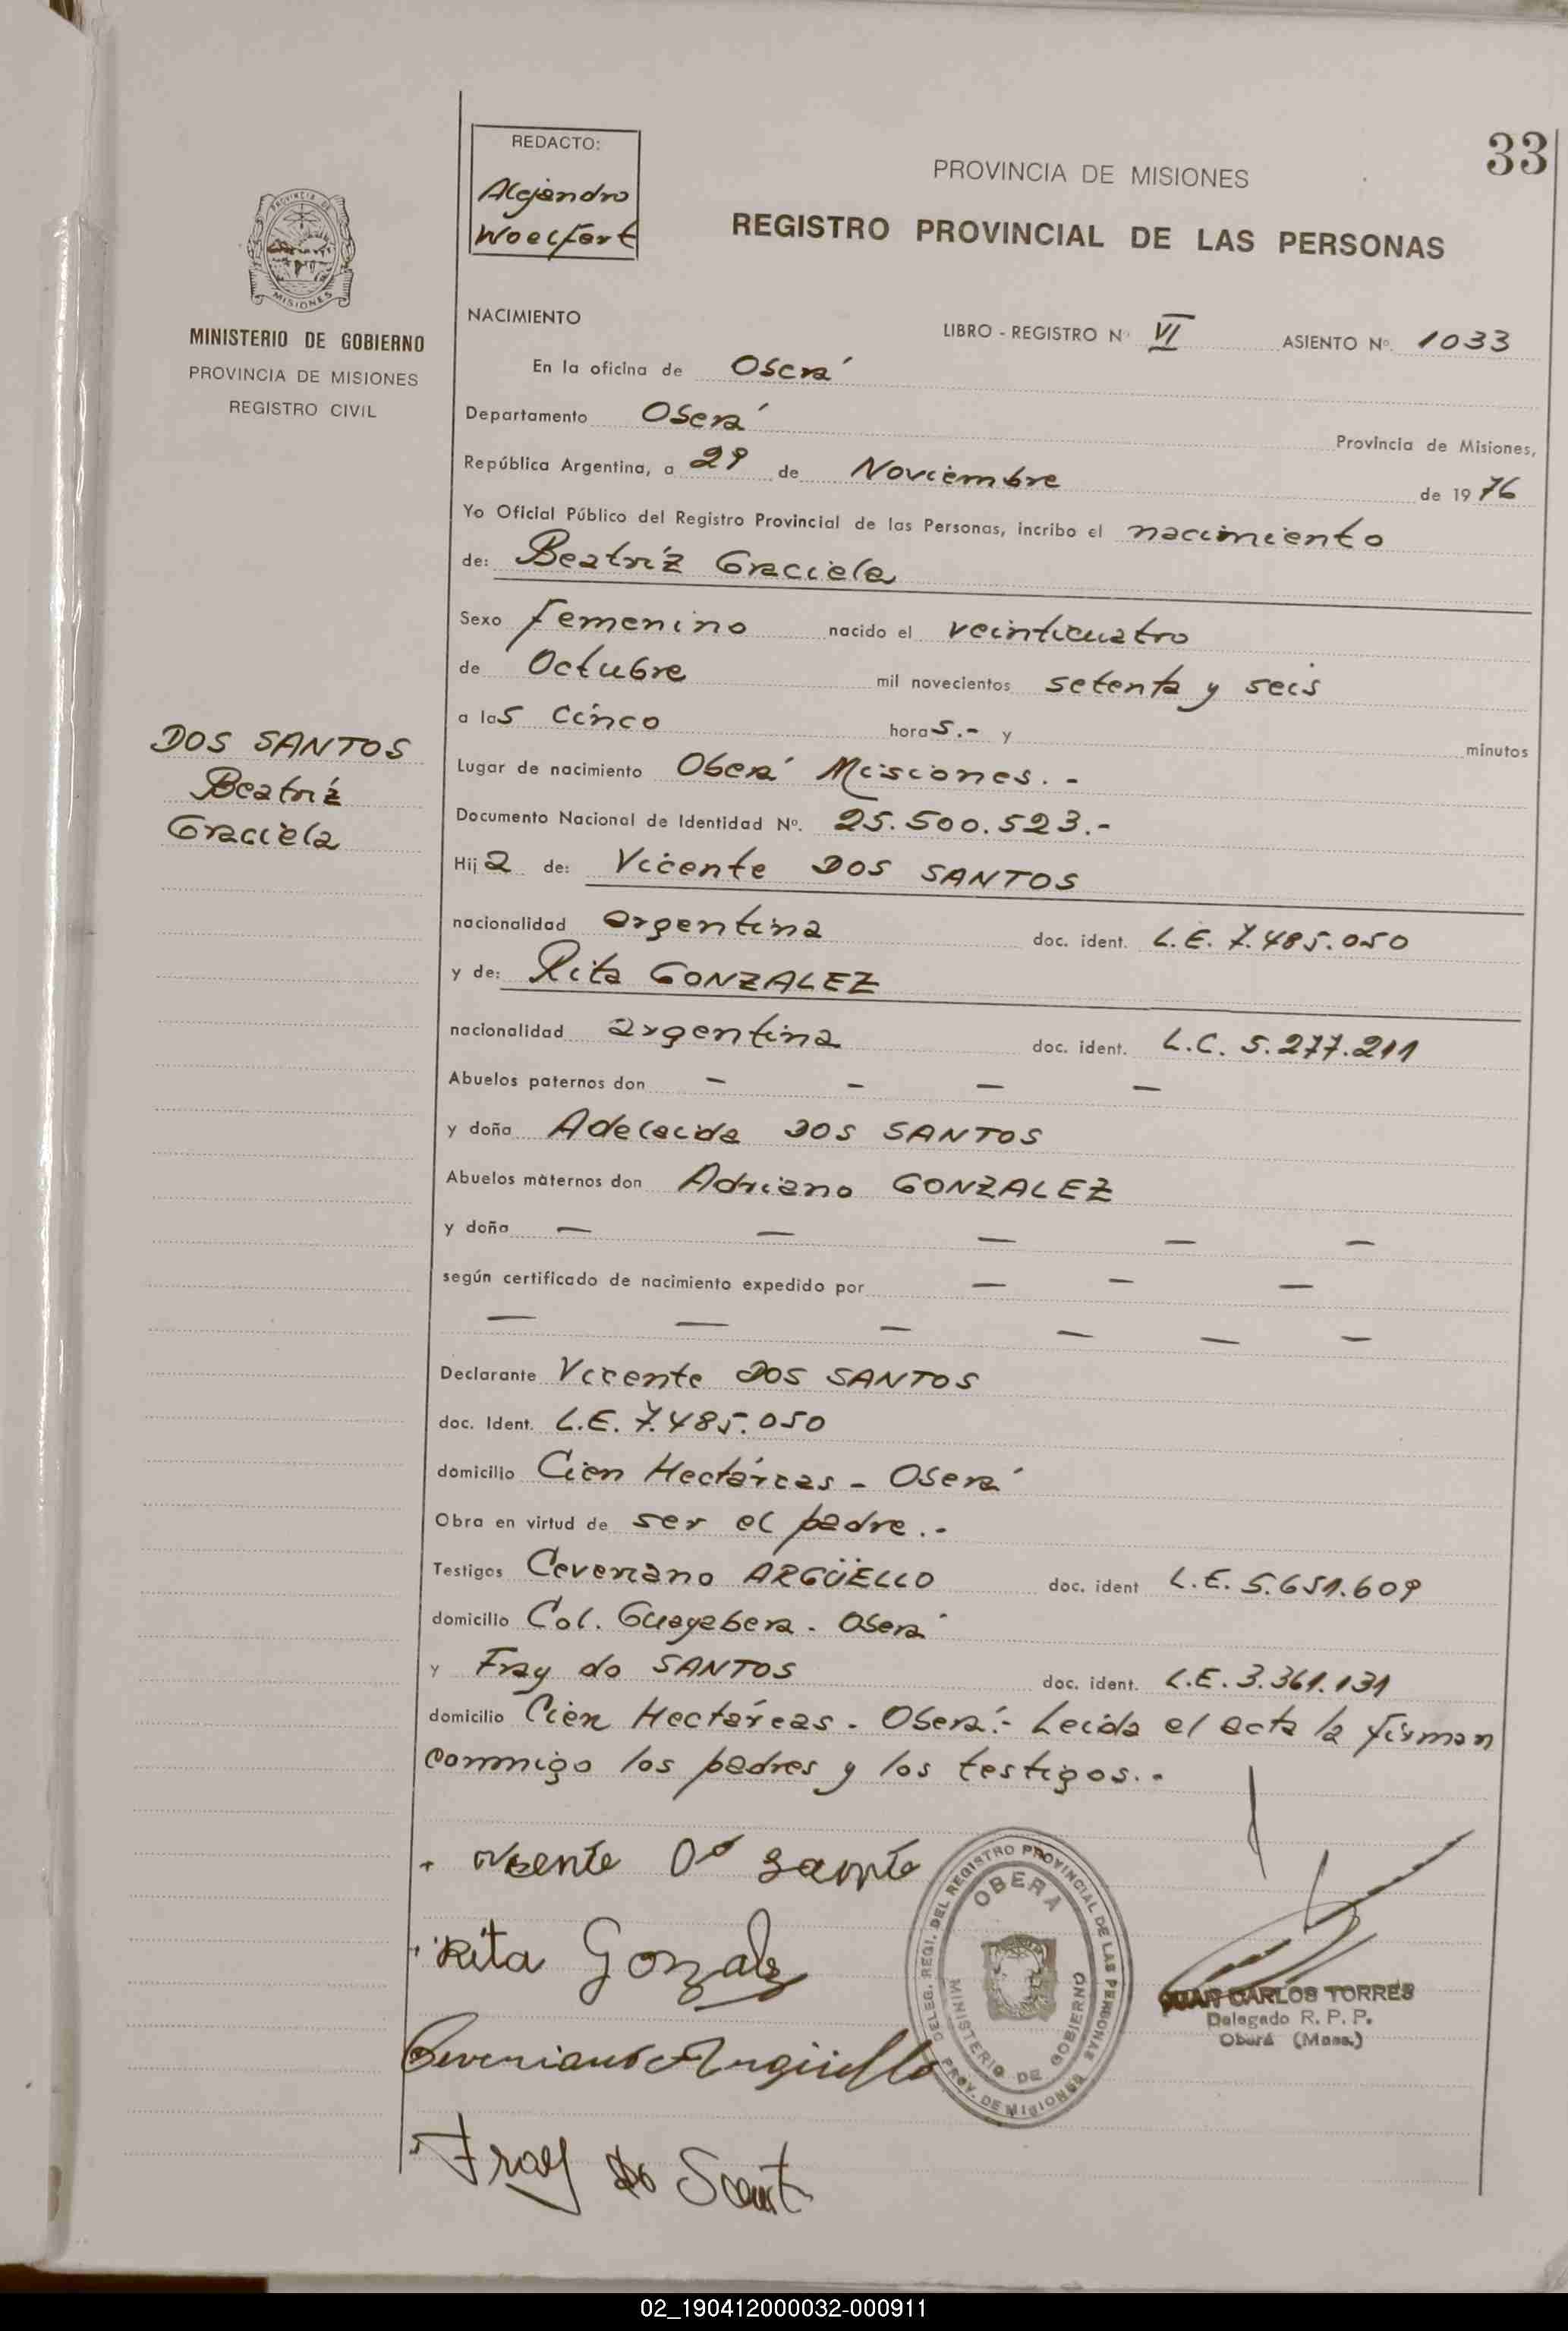 33
REDACTO:
Alejandro
Woelfert
PROVINCIA DE MISIONES
REGISTRO PROVINCIAL DE LAS PERSONAS
PROVINCIA DE
MISIONES
MINISTERIO DE GOBIERNO
PROVINCIA DE MISIONES
REGISTRO CIVIL
NACIMIENTO
LIBRO - REGISTRO Nº VI ASIENTO Nº. 1033
En la oficina de Oberá
Departamento Oberá Provincia de Misiones,
República Argentina, a 29 de Noviembre de 1976
Yo Oficial Público del Registro Provincial de las Personas, incribo el nacimiento
de: Beatríz Graciela
Sexo femenino nacido el veinticuatro
de Octubre mil novecientos setenta y seis
a las cinco horas.- y minutos
DOS SANTOS
Beatríz
Graciela
Lugar de nacimiento Oberá Misiones.-
Documento Nacional de Identidad Nº. 25.500.523.-
Hija de: Vicente DOS SANTOS
nacionalidad argentina doc. ident. L.E. 7.485.050
y de: Rita GONZALEZ
nacionalidad argentina doc. ident. L.C. 5.277.211
Abuelos paternos don — — — —
y doña Adelaida DOS SANTOS
Abuelos maternos don Adriano GONZALEZ
y doña — — — — —
según certificado de nacimiento expedido por — — —
— — — — — —
Declarante Vicente DOS SANTOS
doc. Ident. L.E. 7.485.050
domicilio Cien Hectáreas - Oberá
Obra en virtud de ser el padre.-
Testigos Ceveriano ARGÜELLO doc. ident L.E. 5.651.609
domicilio Col. Guayabera - Oberá
y Fray do SANTOS doc. ident. L.E. 3.361.131
domicilio Cien Hectáreas - Oberá.- Leída el acta la firman
conmigo los padres y los testigos.-
Rita Gonzalez
Ceveriano Argüello
Fray do Sant
DELEG. REGI. DEL REGISTRO PROVINCIAL DE LAS PERSONAS
OBERA
MINISTERIO DE GOBIERNO
PROV. DE MISIONES
JUAN CARLOS TORRES
Delegado R. P. P.
Oberá (Mnes.)
02_190412000032-000911